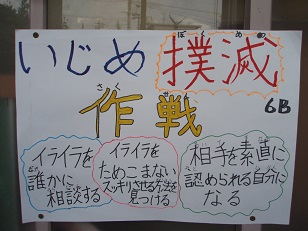 いじめ撲滅
ぼくめつ
作戦
さくせん
6B
イライラを
誰かに
相談する
イライラを
ためこまない
スッキリさせる方法を
見つける
相手を素直に
認められる自分に
なる